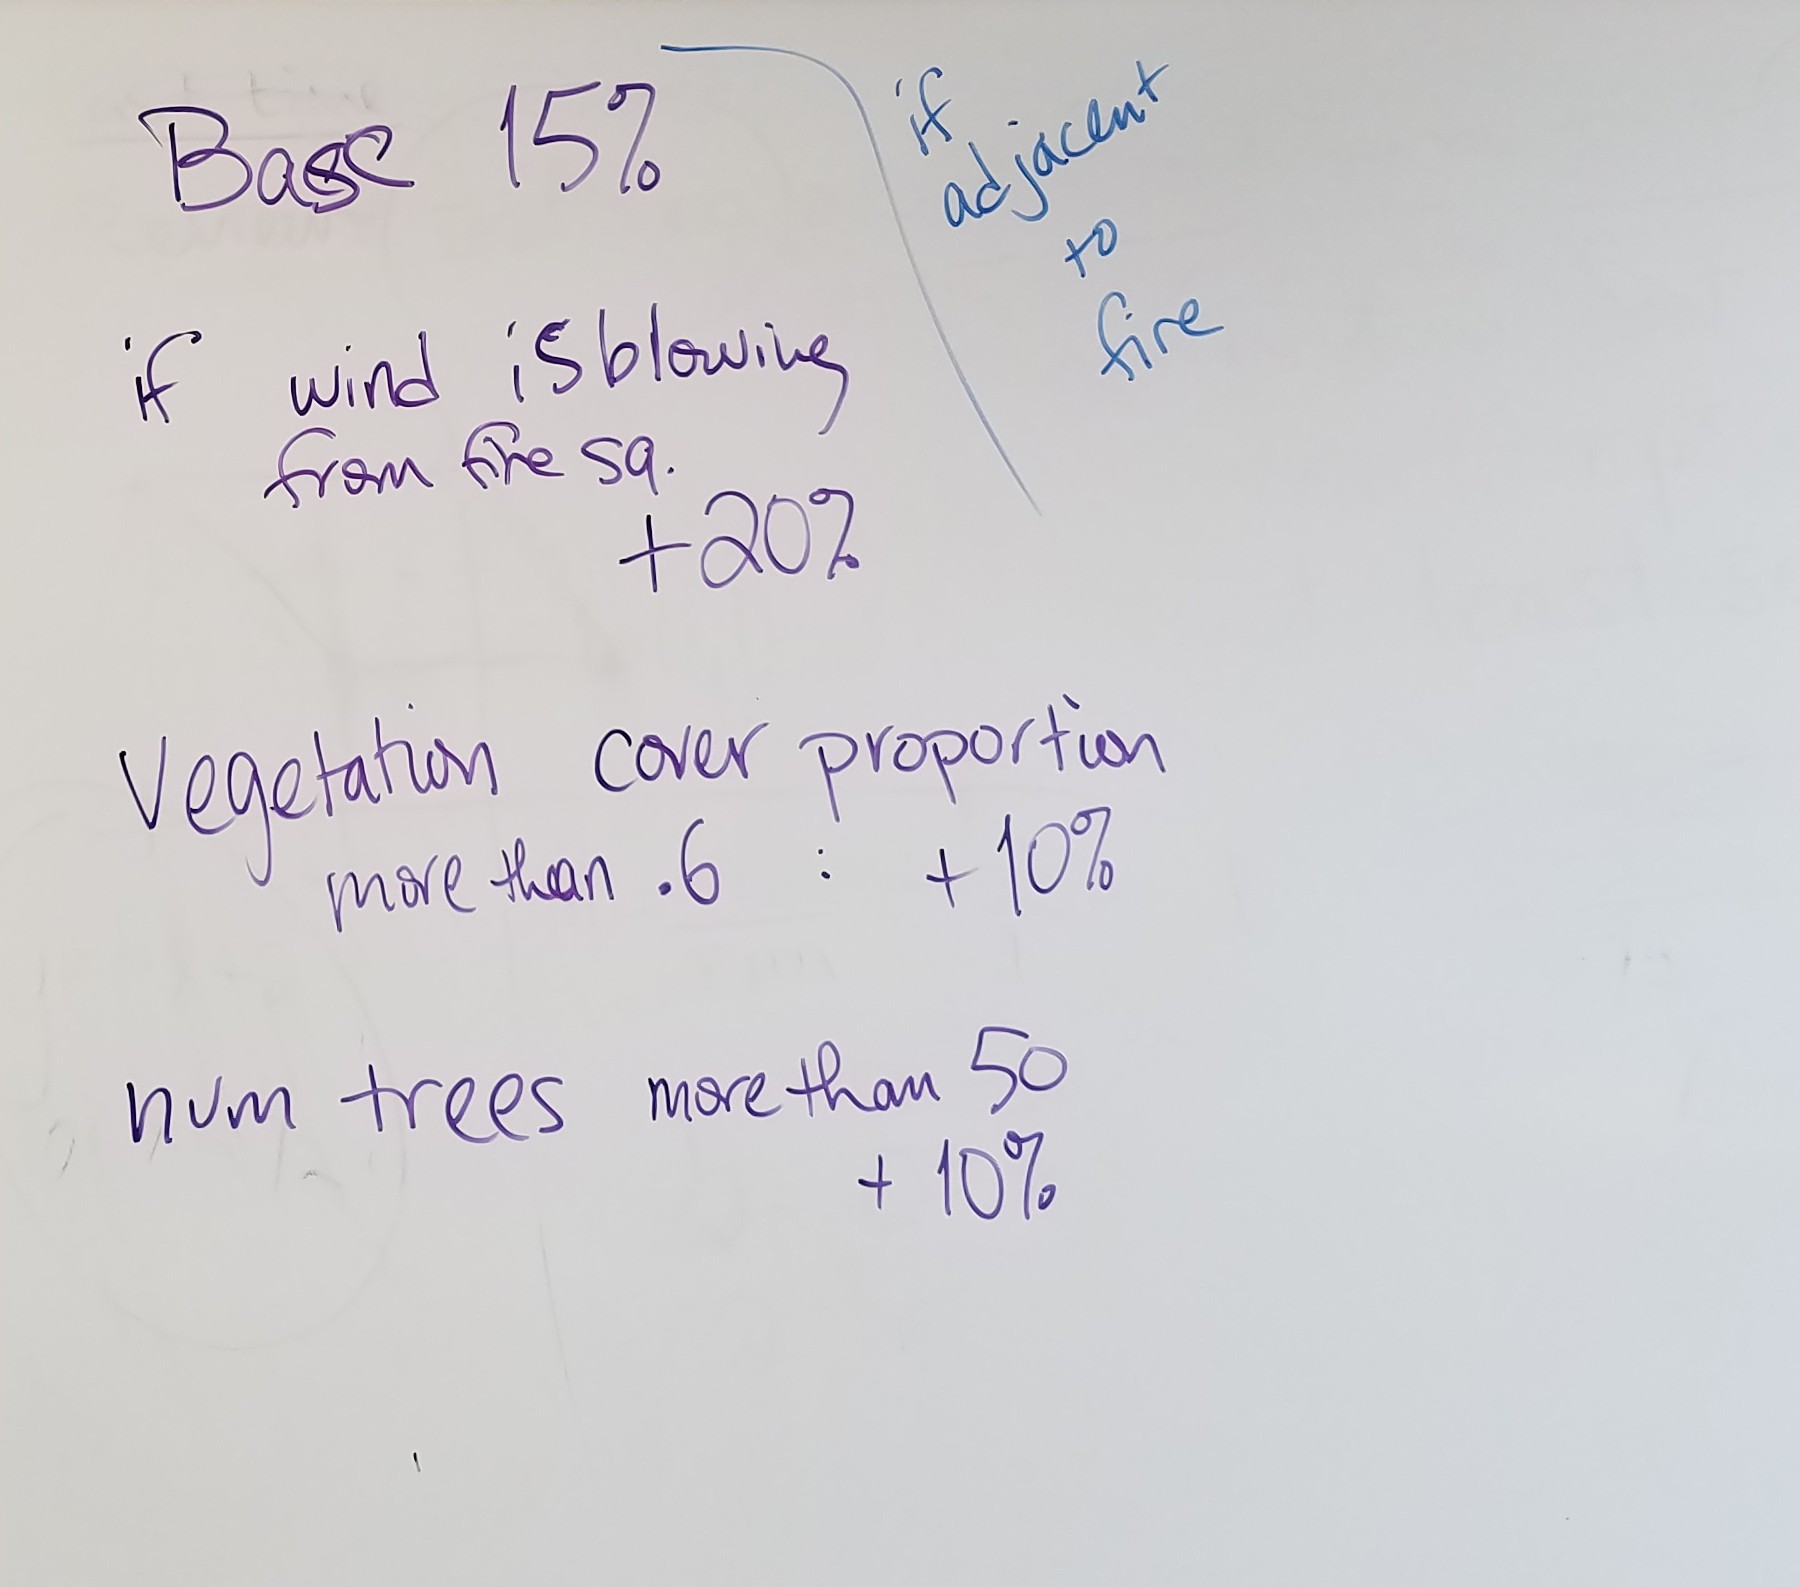 Base 15%
if
adjacent
to
fire
if wind is blowing
from fire sq.
+20%
Vegetation cover proportion
more than .6 : +10%
num trees more than 50
+ 10%